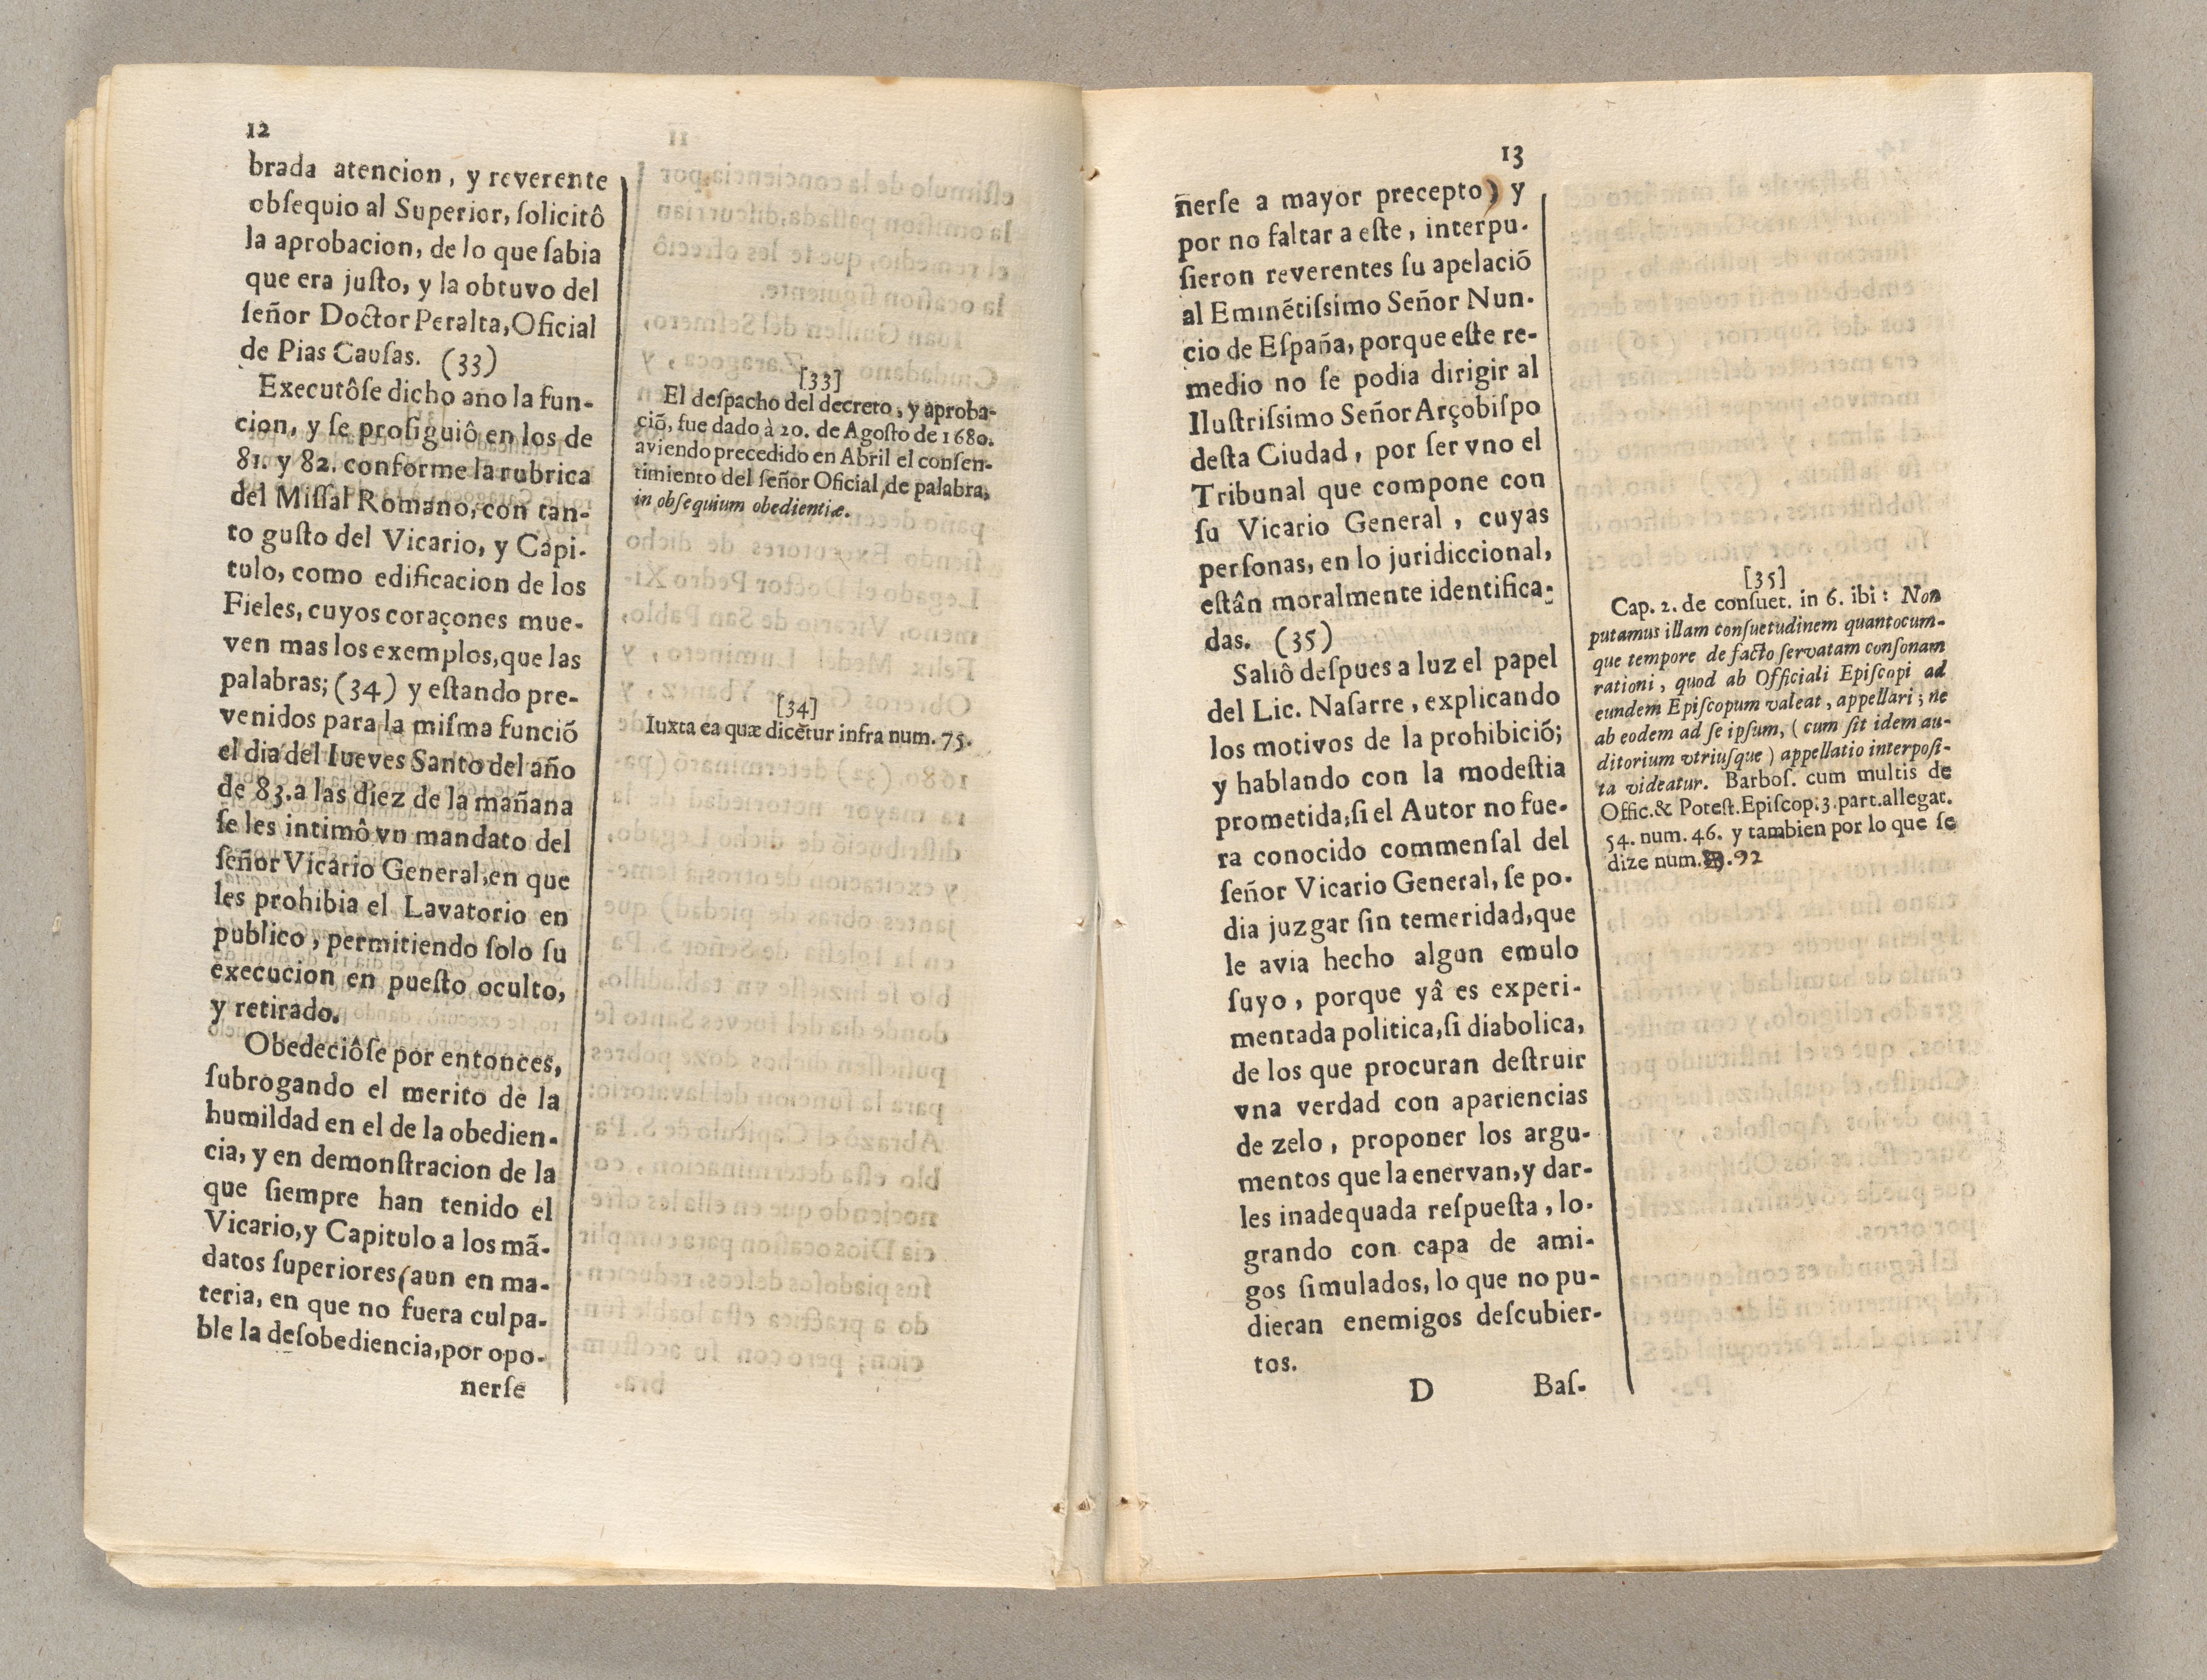 12
brada atencion, y reverente
obſequio al Superior, ſolicitô
la aprobacion, de lo que ſabia
que era juſto, y la obtuvo del
ſeñor Doctor Peralta, Oficial
de Pias Cauſas. (33)
Executôſe dicho año la fun-
cion, y ſe proſiguiô en los de
81. y 82. conforme la rubrica
del Miſſal Romano, con tan-
to guſto del Vicario, y Capi-
tulo, como edificacion de los
Fieles, cuyos coraçones mue-
ven mas los exemplos, que las
palabras; (34) y eſtando pre-
venidos para la miſma funciõ
el dia del Iueves Santo del año
de 83. a las diez de la mañana
ſe les intimô vn mandato del
ſeñor Vicario General, en que
les prohibia el Lavatorio en
publico, permitiendo ſolo ſu
execucion en pueſto oculto,
y retirado.
Obedeciôſe por entonces,
ſubrogando el merito de la
humildad en el de la obedien-
cia, y en demonſtracion de la
que ſiempre han tenido el
Vicario, y Capitulo a los mã-
datos ſuperiores (aun en ma-
teria, en que no fuera culpa-
ble la deſobediencia, por opo-
nerſe
[33]
El deſpacho del decreto, y aproba-
ciõ, fue dado à 20. de Agoſto de 1680.
aviendo precedido en Abril el conſen-
timiento del ſeñor Oficial de palabra,
in obſequium obedientiæ.
[34]
Iuxta ea quæ dicẽtur infra num. 75.
13
nerſe a mayor precepto) y
por no faltar a eſte, interpu-
ſieron reverentes ſu apelaciõ
al Eminẽtiſsimo Señor Nun-
cio de Eſpaña, porque eſte re-
medio no ſe podia dirigir al
Iluſtriſsimo Señor Arçobiſpo
deſta Ciudad, por ſer vno el
Tribunal que compone con
ſu Vicario General, cuyas
perſonas, en lo juridiccional,
eſtân moralmente identifica-
das. (35)
Saliô deſpues a luz el papel
del Lic. Naſarre, explicando
los motivos de la prohibiciõ;
y hablando con la modeſtia
prometida; ſi el Autor no fue-
ra conocido commenſal del
ſeñor Vicario General, ſe po-
dia juzgar ſin temeridad, que
le avia hecho algun emulo
ſuyo, porque yâ es experi-
mentada politica, ſi diabolica,
de los que procuran deſtruir
vna verdad con apariencias
de zelo, proponer los argu-
mentos que la enervan, y dar-
les inadequada reſpueſta, lo-
grando con capa de ami-
gos ſimulados, lo que no pu-
dieran enemigos deſcubier-
tos.
D Baſ-
[35]
Cap. 2. de conſuet. in 6. ibi: Non
putamus illam conſuetudinem quantocum-
que tempore de facto ſervatam conſonam
rationi, quod ab Officiali Epiſcopi ad
eundem Epiſcopum valeat, appellari; ne
ab eodem ad ſe ipſum, (cum ſit idem au-
ditorium vtriuſque) appellatio interpoſi-
ta videatur. Barboſ. cum multis de
Offic. & Poteſt. Epiſcop. 3. part. allegat.
54. num. 46. y tambien por lo que ſe
dize num. 92